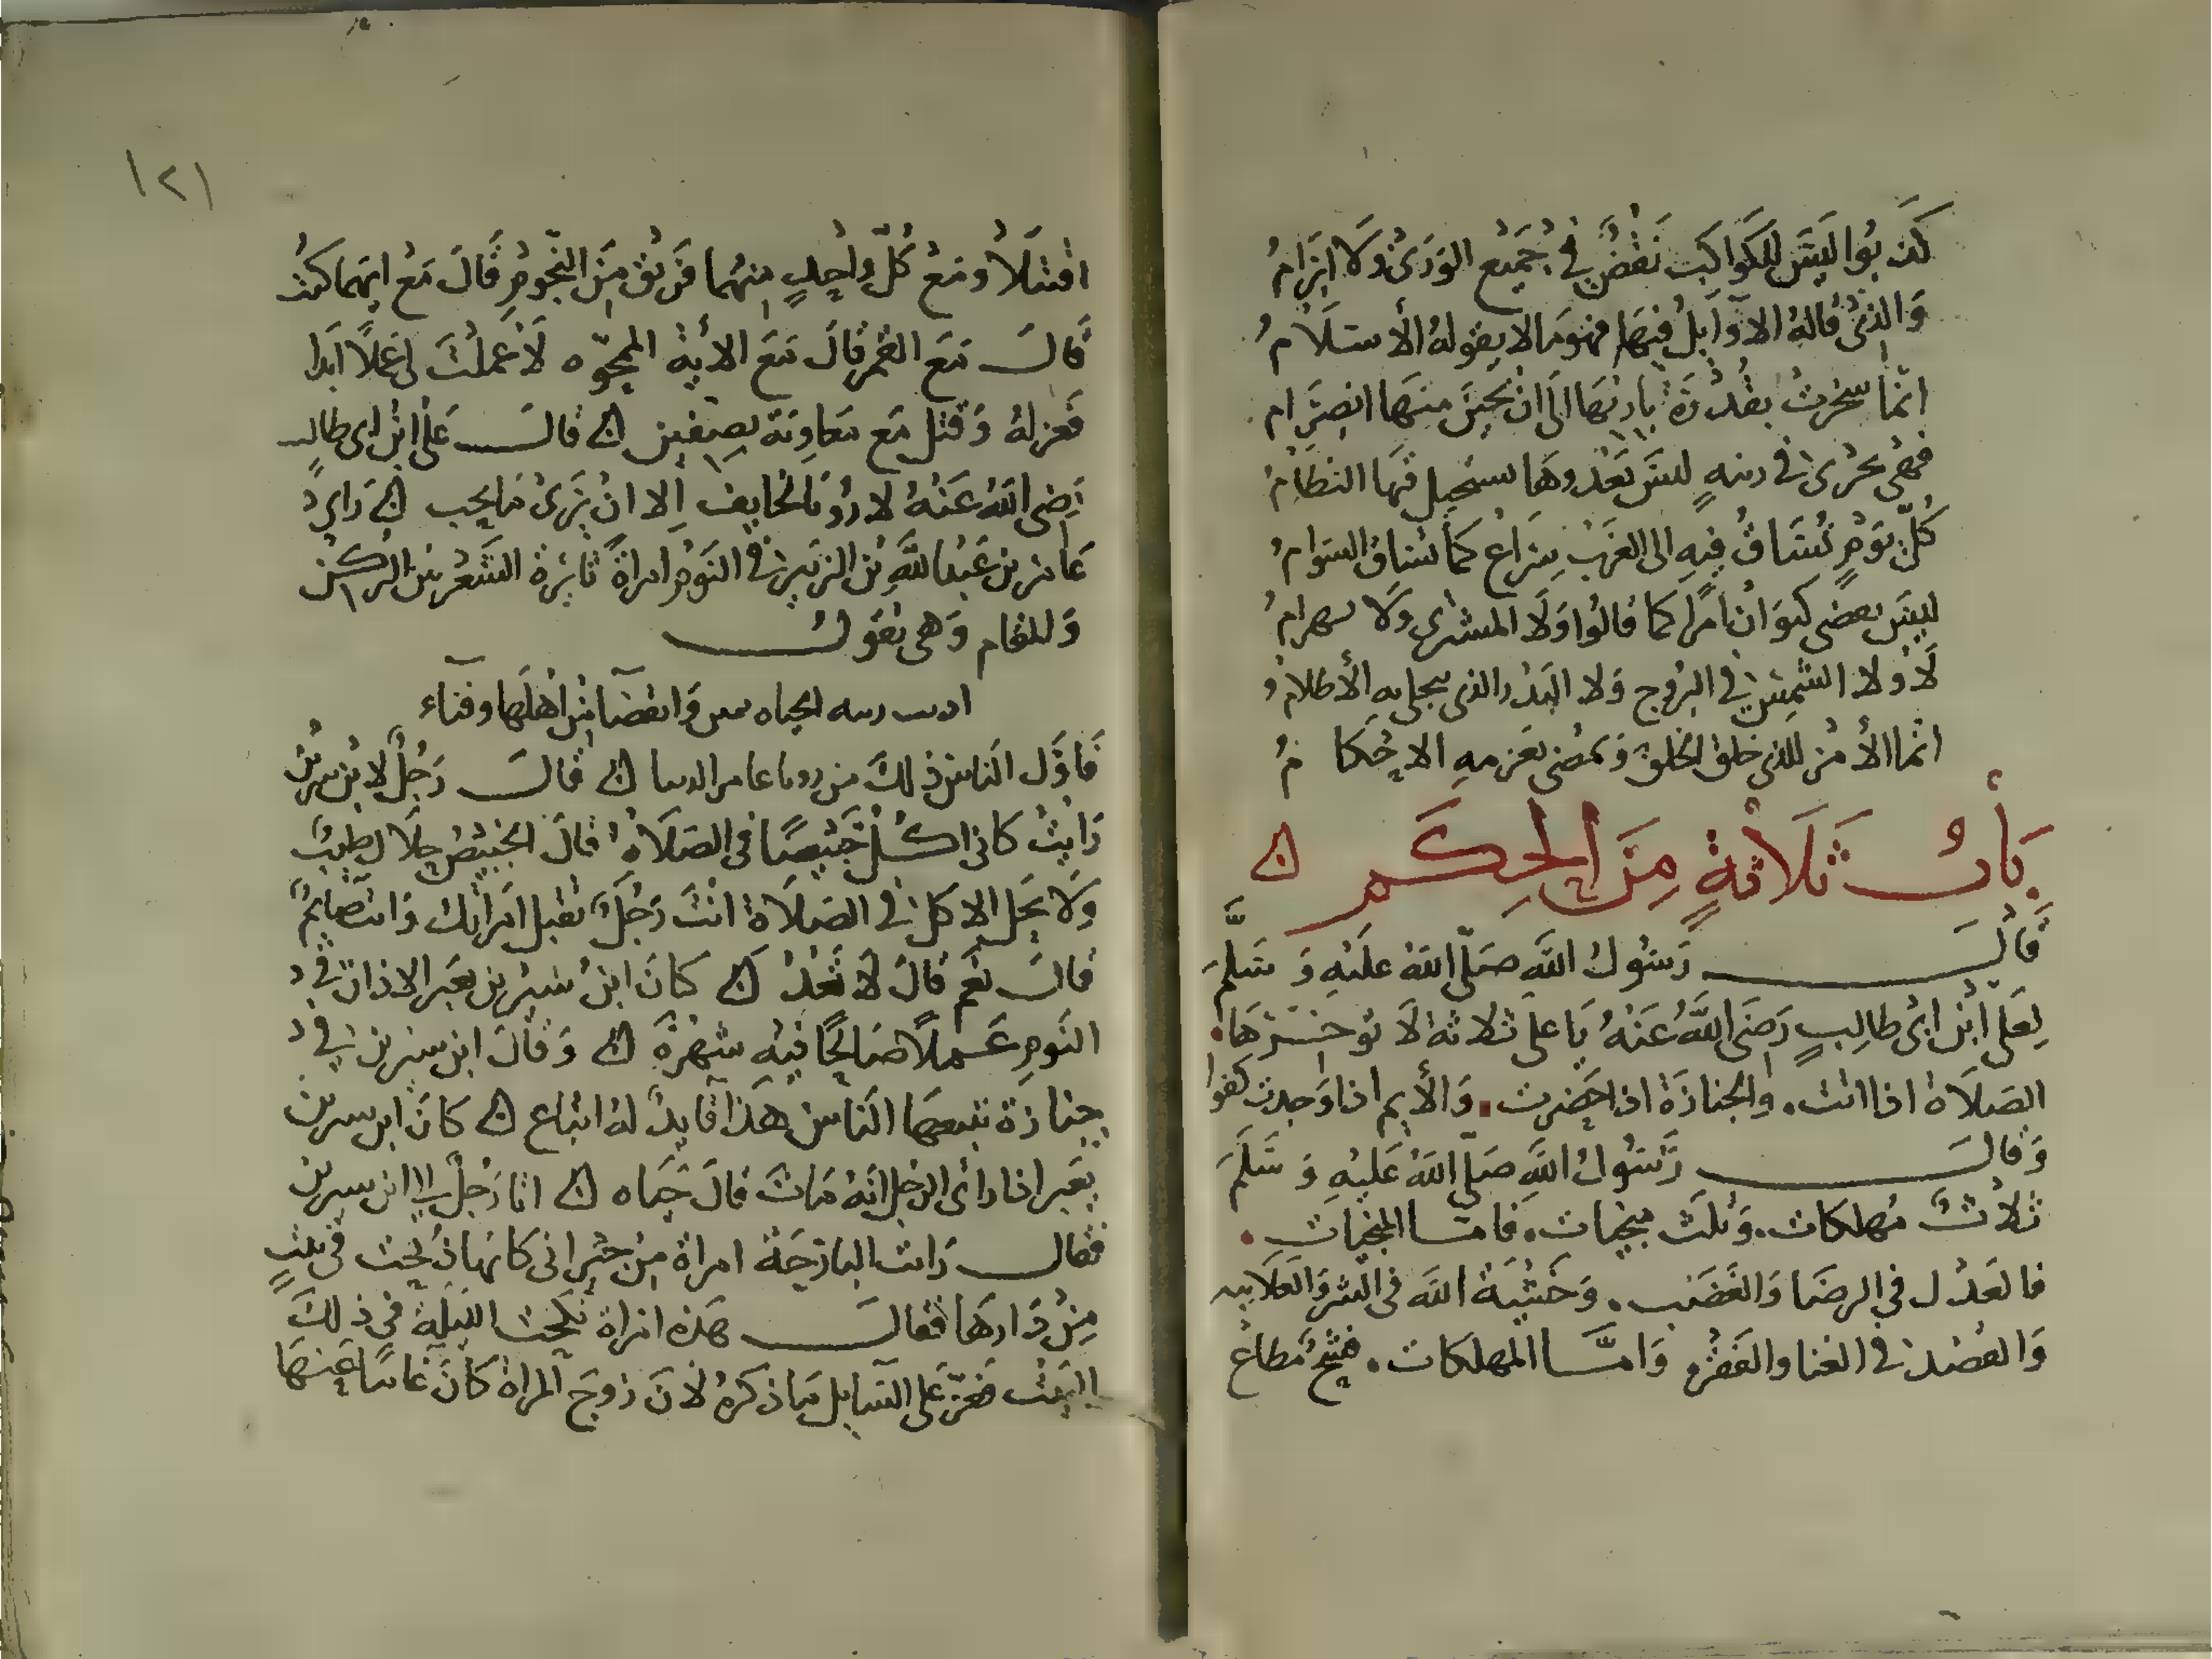 كذبوا ليس للكواكب نقض في جميع الورى ولا ابرام
والذي قاله الاوايل فيها فهو مالا يقوله الأسلام
انما سخرت بقدرة باريها الى ان يحين منها انصرام
فهي تجري في ليس بعدوها يستحيل فيها النظام
كل يوم تساق فيه الى الغرب سراع كما تساق السوام
ليس يعضي كيوان امرا كما قالوا ولا المشتري ولا بهرام
لا ولا الشمس في البروج ولا البدر الذي ينجلي به الأظلام
انما الأمر للذي خلق الخلق ويمضي بعزمه الاحكام
باب ثلاثة من الحكم
قال رسول الله صلى الله عليه وسلم
لعلي ابن ابي طالب رضي الله عنه يا علي ثلاثة لا توخرها
الصلاة اذا اتت. والجنازة اذا حضرت. والأيم اذا وجدت كفوا
وقال رسول الله صلى الله عليه وسلم
ثلاث مهلكات. وثلث منجيات. فاما المنجيات.
فالعدل في الرضا والغضب. وخشية الله في السر والعلانيه
والقصد في الغنا والفقر وامّا المهلكات. فشح مطاع
١٢١
اقتتلا ومع كل واحد منهما فريق من النجوم قال مع ايهما كنت
قال مع القمر قال مع الاية الممحوّه لا عملت لي عملا ابدا
فعزله وقتل مع معاوية بصفين قال علي ابن ابي طالب
رضي الله عنه لا رويا لخايف الا ان يرى ما يحب راي
عامر بن عبد الله بن الزبير في النوم امراة ثايرة الشعر بين الركن
والمقام وهي تقول
الحياه وانقضا من اهلها وفناء
فاوّل الناس ذلك من عامر قال رجل لابن سيرين
رايت كاني اكل خبيصا في الصلاة قال الخبيص حلال طيب
ولا يحل الاكل في الصلاة انت رجل تقبل امراتك وانت صايم
قال نعم قال لا تعد كان ابن سيرين يعبر الاذان في
النوم عملا صالحا فيه شهرة وقال ابن سيرين في
جنازة تتبعها الناس هذا قايد له اتباع كان ابن سيرين
يعبر اذا راى الرجل انه مات قال حياه اتا رجل الى ابن سيرين
فقال رايت البارحة امراة من جيراني كانها ذبحت في بيت
من دارها فقال هذه امراة نكحت الليلة في ذلك
البيت فعز على السايل ما ذكره لان زوج المراة كان غايبا عنها